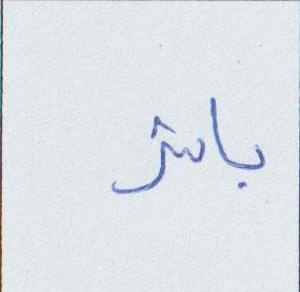 باشر